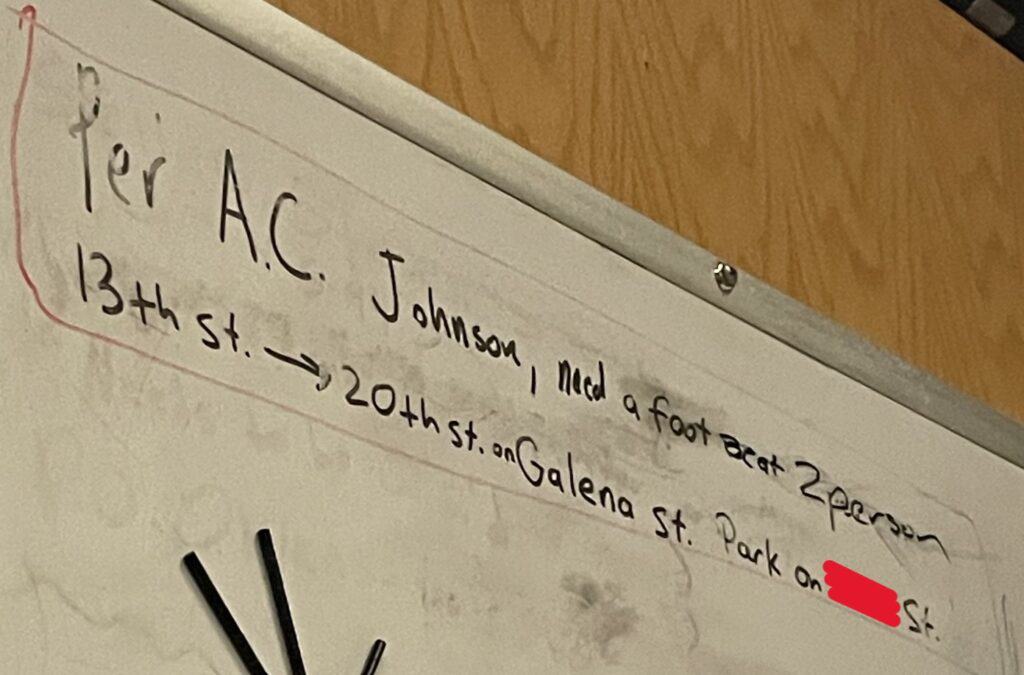 Per A.C. Johnson, need a foot Beat 2 person
13th st. → 20th st. on Galena st. Park on St.